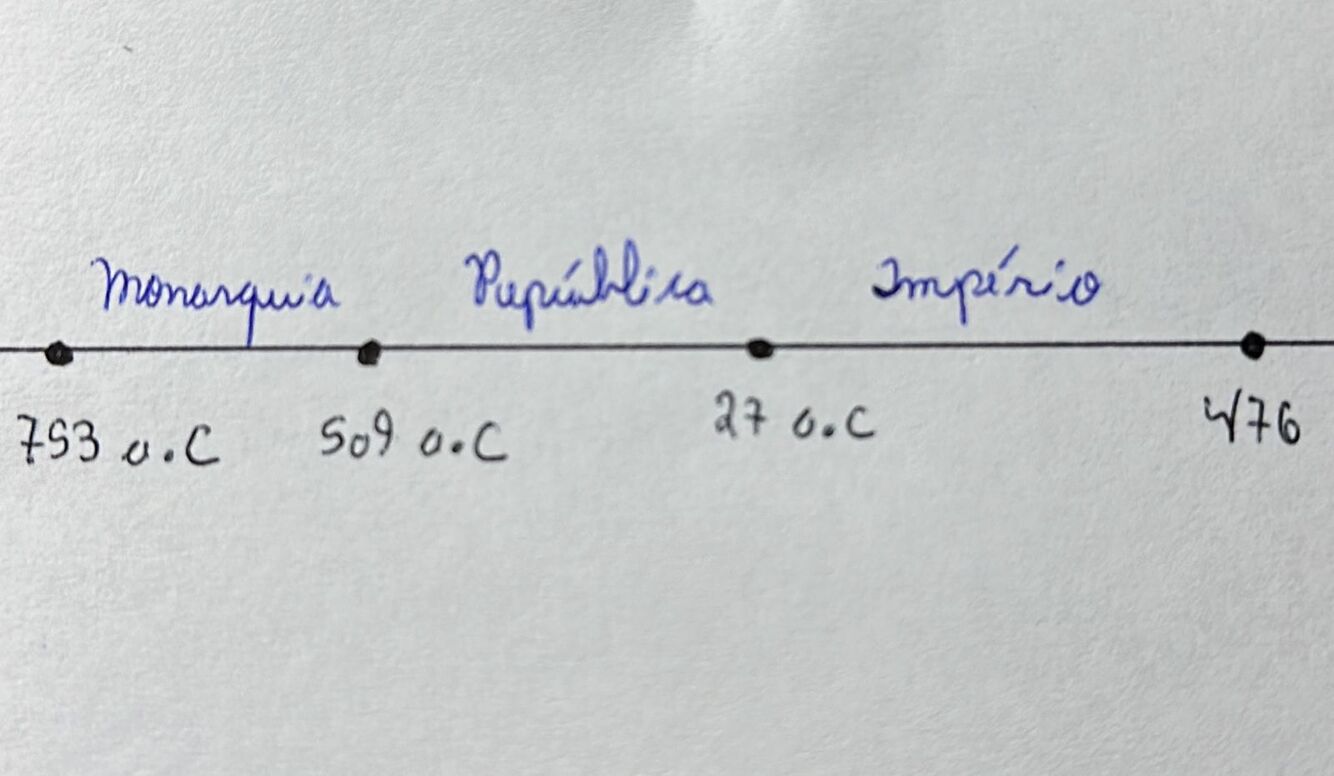 Monarquia República Império
753 a.C 509 a.C 27 a.C 476